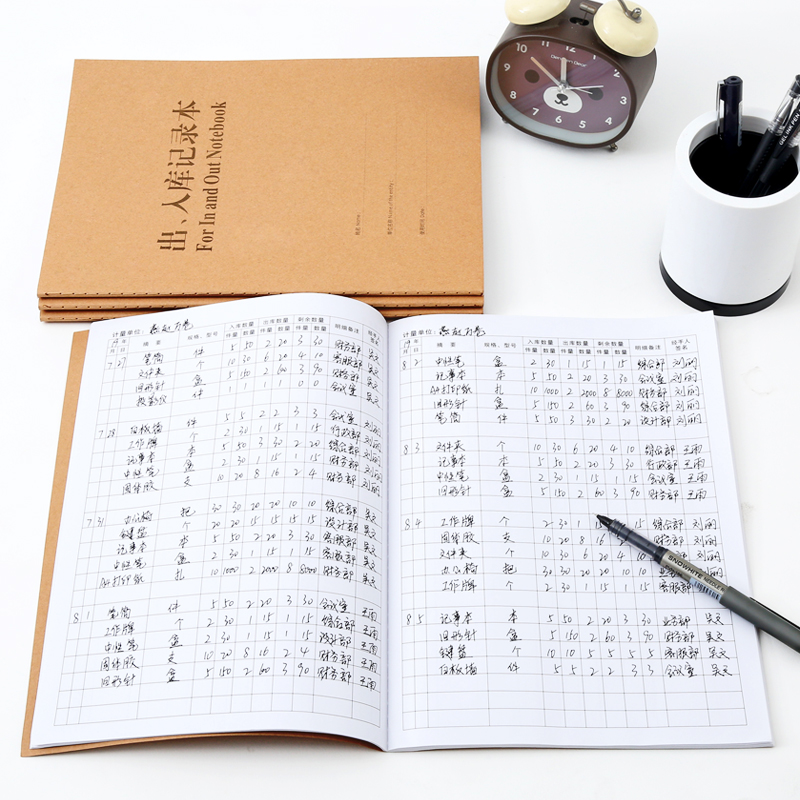 出、入库记录本
For In and Out Notebook
10 12 1 2 3 4 5 6 7 8 9
GEL INK PEN
计量单位:
年 摘 要 规格、型号 入库数量 出库数量 剩余数量 明细备注 经手人
月 日 件量 数量 件量 数量 件量 数量 签名
7 27 笔筒 件 5 50 2 20 3 30 财务部 吴文
文件夹 个 10 30 6 20 4 10 客服部 吴文
回形针 盒 5 150 2 60 3 90 财务部 吴文
投影仪 件 1 1 1 1 0 0 会议室 吴文
7 28 白板擦 件 5 5 2 2 3 3 会议室 刘丽
工作牌 个 2 30 1 15 1 15 行政部 刘丽
记事本 本 5 50 3 30 2 20 综合部 刘丽
中性笔 盒 2 30 1 15 1 15 财务部 刘丽
固体胶 支 10 20 8 16 2 4 财务部 刘丽
7 31 办公椅 把 30 30 20 20 10 10 综合部 吴文
键盘 个 20 20 15 15 15 15 设计部 吴文
记事本 本 5 50 2 20 3 30 客服部 吴文
中性笔 盒 2 30 1 15 1 15 客服部 吴文
A4打印纸 扎 10 1000 2 2000 8 8000 财务部 吴文
8 1 笔筒 件 5 50 2 20 3 30 会议室 王雨
工作牌 个 2 30 1 15 1 15 综合部 王雨
中性笔 盒 2 30 1 15 1 15 设计部 王雨
固体胶 支 10 20 8 16 2 4 财务部 王雨
回形针 盒 5 150 2 60 3 90 财务部 王雨
计量单位:
年 摘 要 规格、型号 入库数量 出库数量 剩余数量 明细备注 经手人
月 日 件量 数量 件量 数量 件量 数量 签名
8 2 中性笔 盒 2 30 1 15 1 15 综合部 刘丽
记事本 本 5 50 2 20 3 30 会议室 刘丽
A4打印纸 扎 10 1000 2 2000 8 8000 财务部 刘丽
回形针 盒 5 150 2 60 3 90 财务部 刘丽
笔筒 件 5 50 3 30 2 20 设计部 刘丽
8 3 文件夹 个 10 30 6 20 4 10 综合部 王雨
记事本 本 5 50 2 20 3 30 行政部 王雨
中性笔 盒 2 30 1 15 1 15 会议室 王雨
回形针 盒 5 150 2 60 3 90 财务部 王雨
8 4 工作牌 个 2 30 1 15 1 15 综合部 刘丽
固体胶 支 10 20 8 16 财务部 刘丽
文件夹 个 10 30 6 20 4 10
办公椅 把 30 30 20 20 10 10
工作牌 个 2 30 1 15 1 15 客服部
8 5 记事本 本 5 50 2 20 3 30 业务部 吴文
回形针 盒 5 150 2 60 3 90 财务部 吴文
键盘 盒 10 10 5 5 5 5 客服部 吴文
白板擦 件 5 5 2 2 3 3 会议室 吴文
SNOWHITE NEEDLE